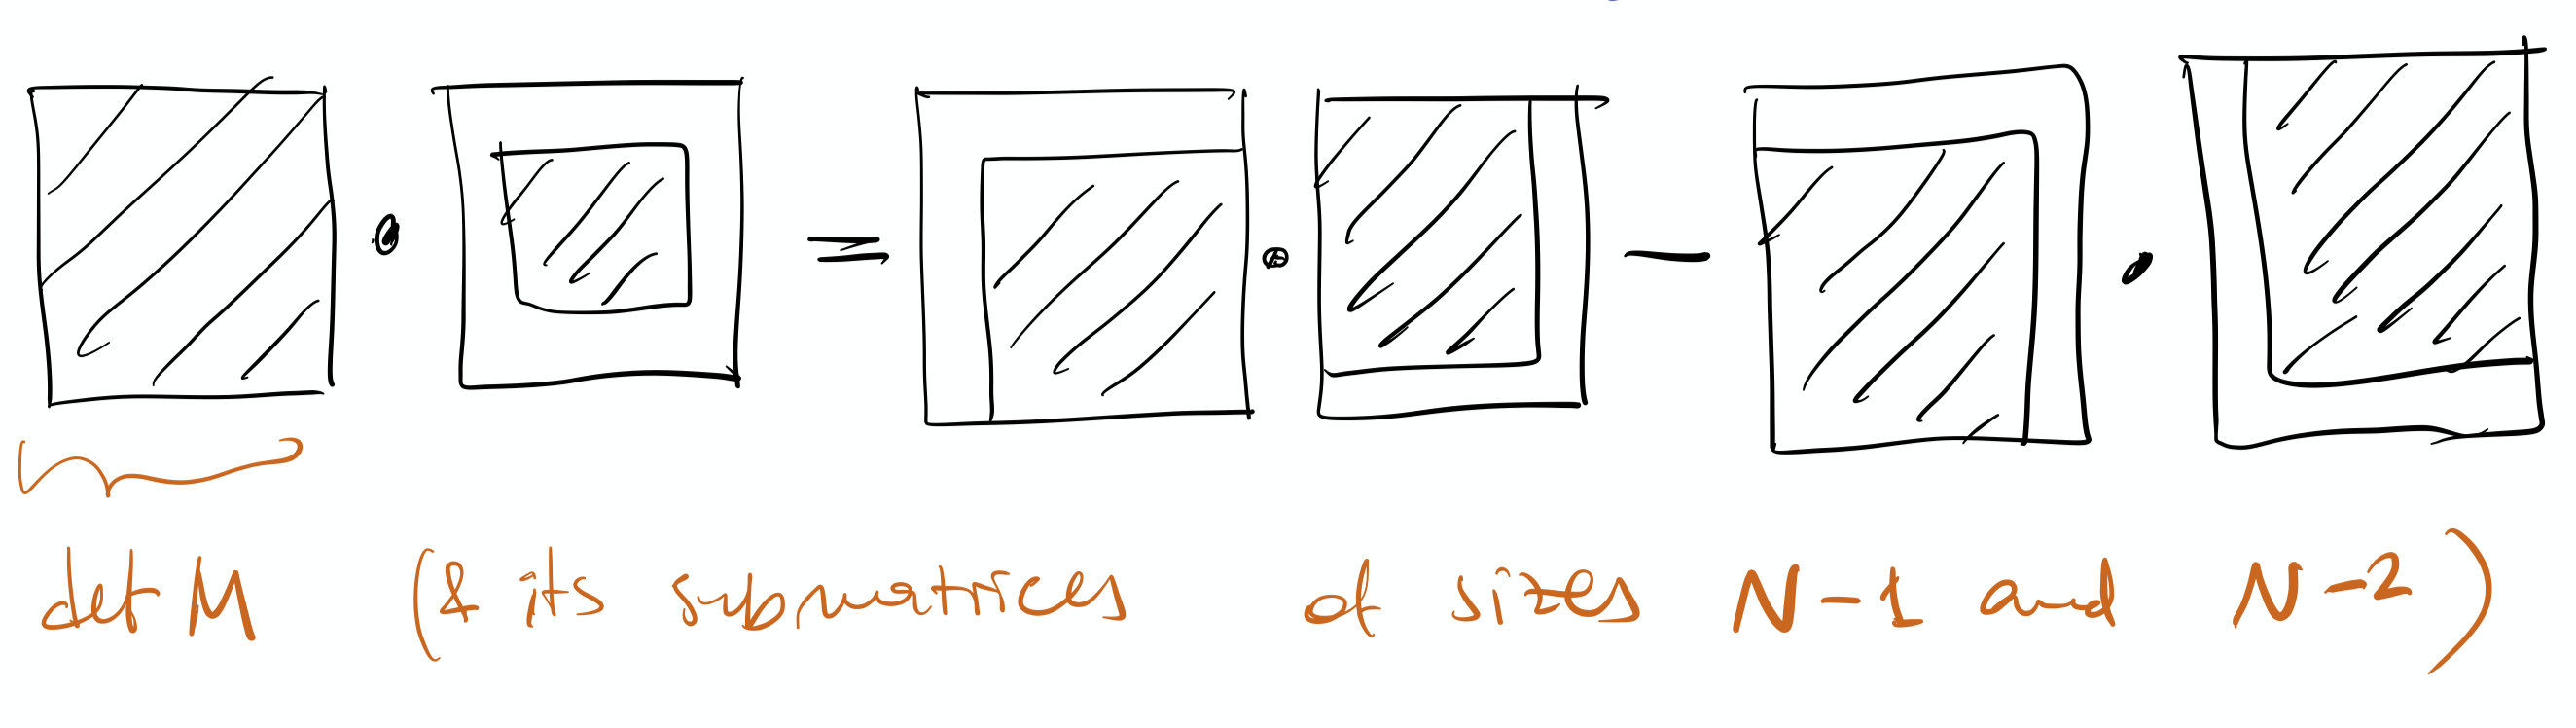 • = • - •
det M (& its submatrices of sizes N-1 and N-2)